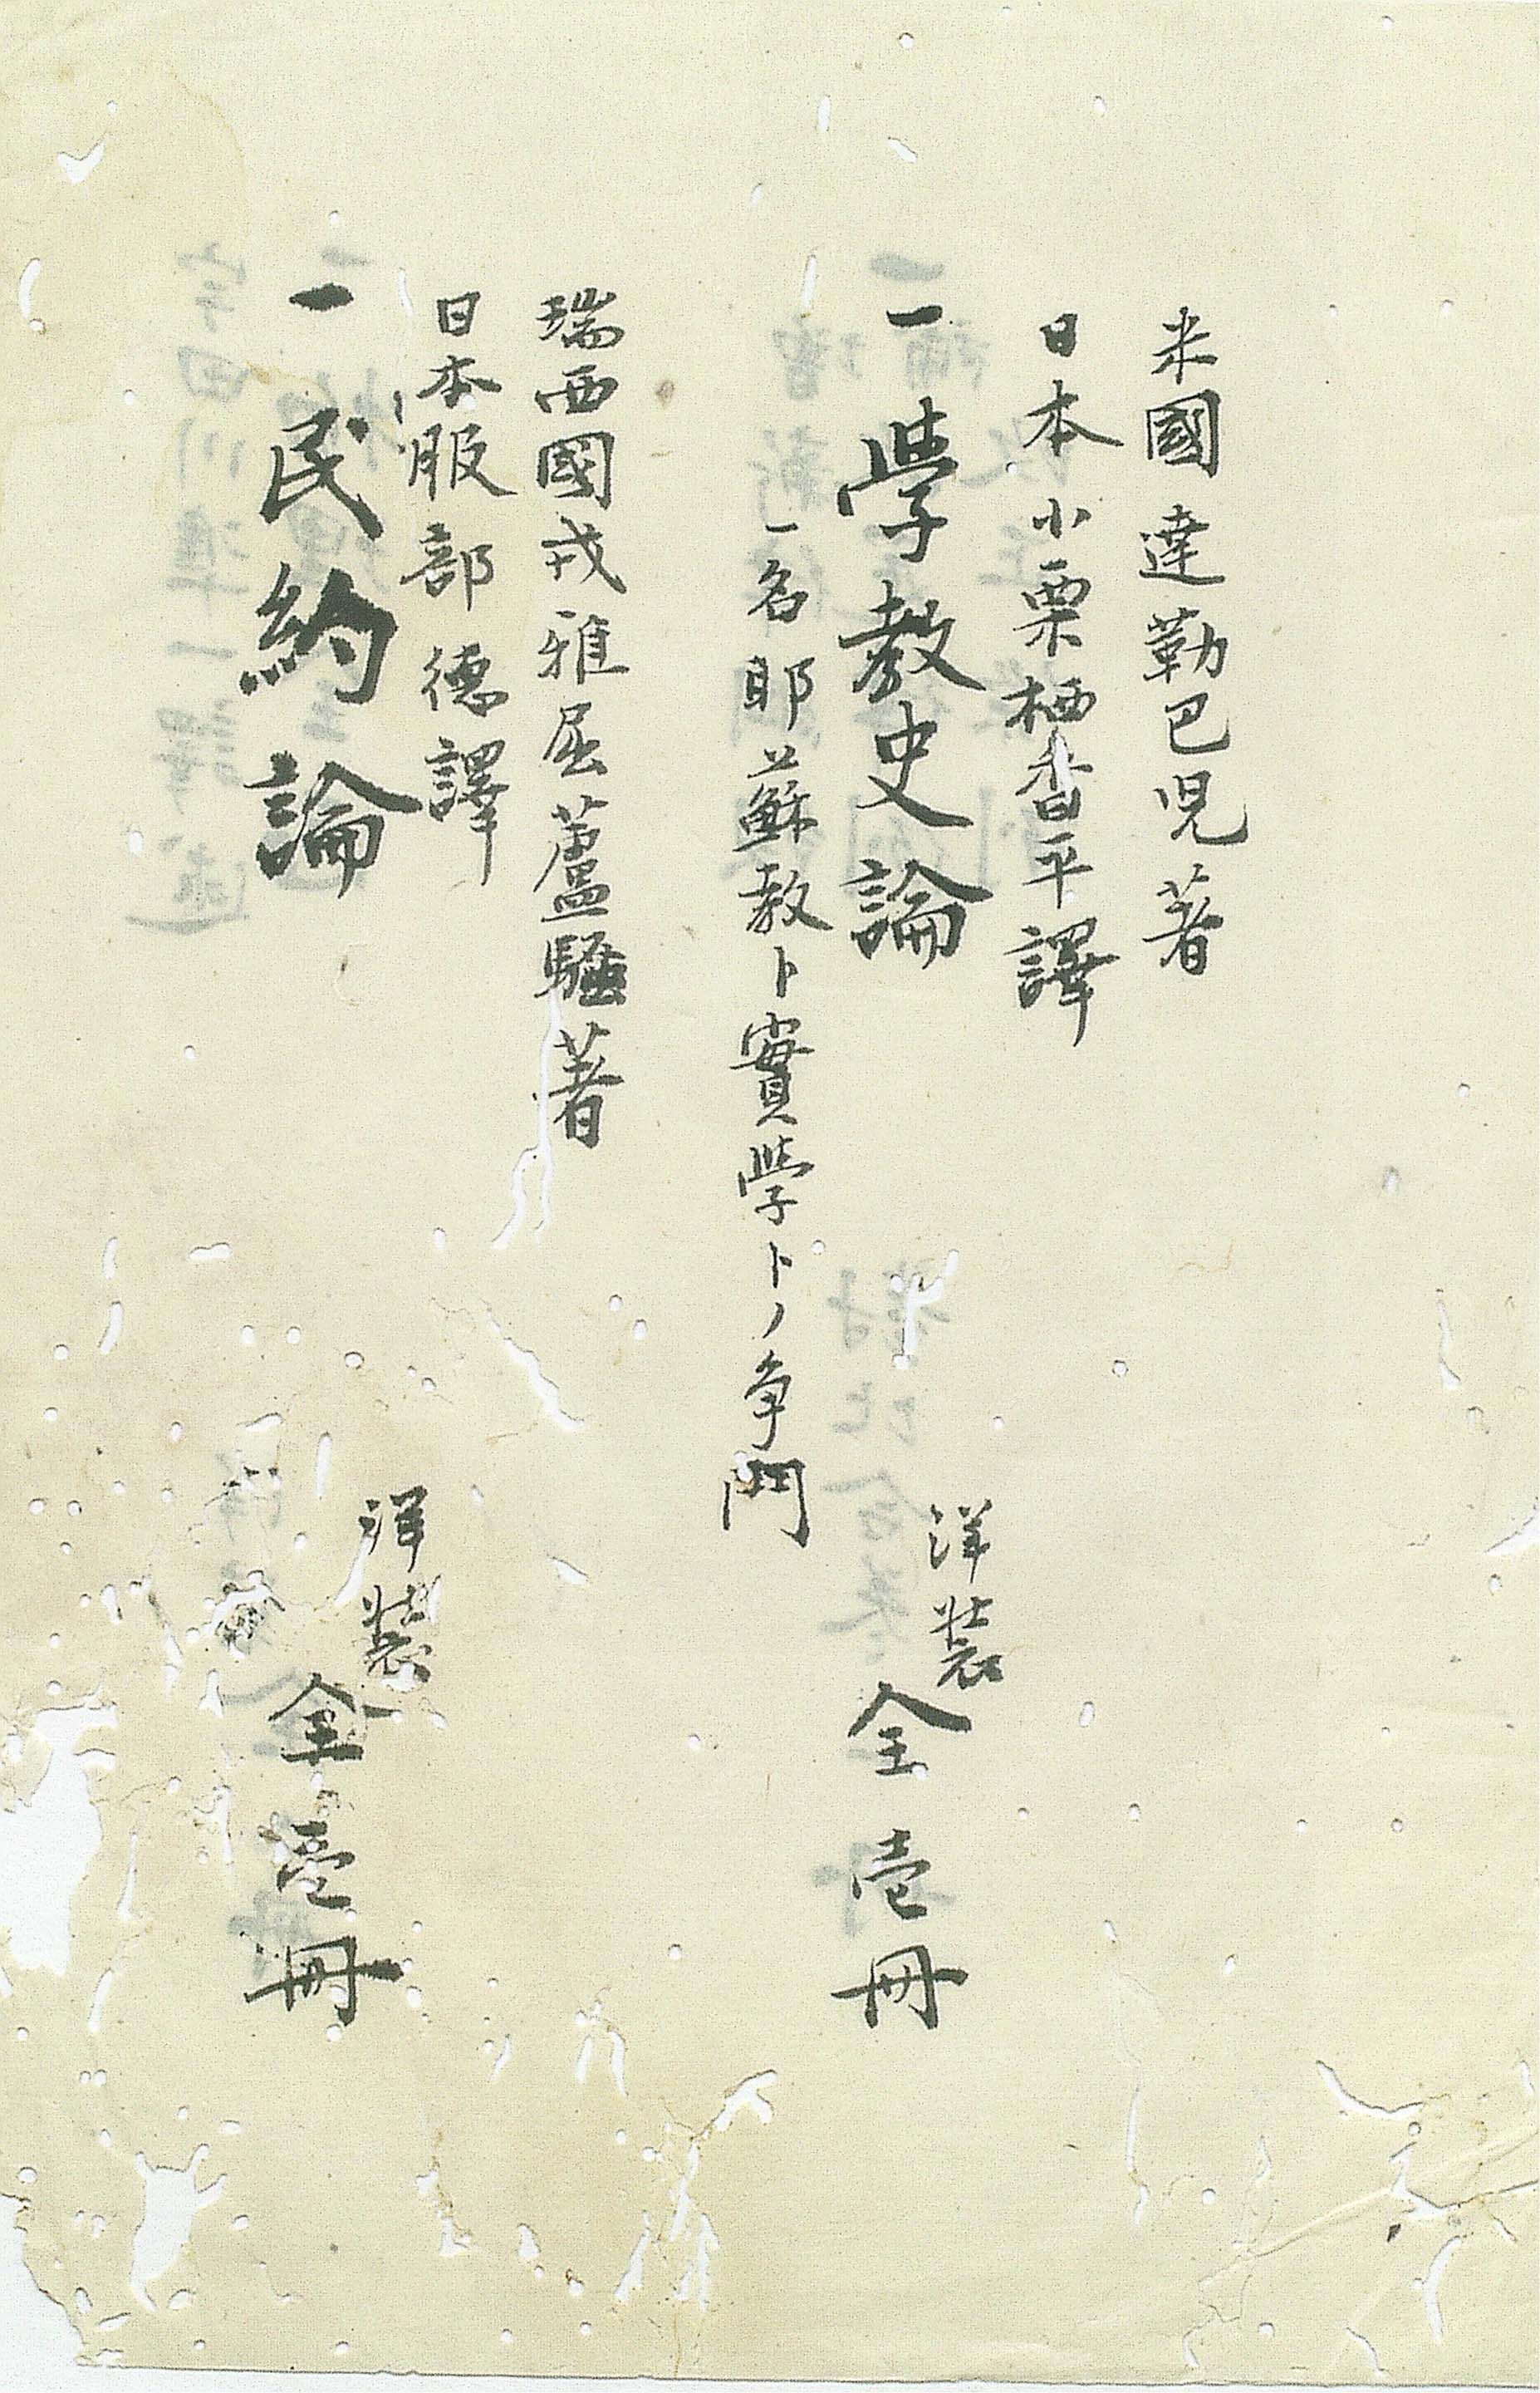 米國 達勒巴児著
日本 小栗栖香平譯
一 學教史論 洋装 全壱冊
一名耶蘇教ト實學トノ争鬥
瑞西國戎雅屈蘆騷著
日本服部德譯
一 民約論 洋装 全壱冊